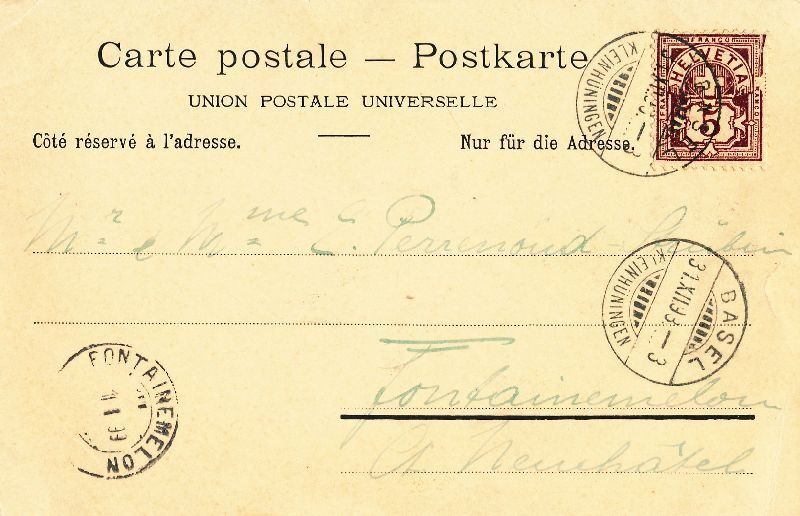 Carte postale — Postkarte
UNION POSTALE UNIVERSELLE
Côté réservé à l'adresse.
Nur für die Adresse.
FRANCO
HELVETIA
5
KLEINHÜNINGEN
Mr & Mme C. Perrenoud-
BASEL
31.XII.99.–3
KLEINHÜNINGEN
Fontainemelon
Ct Neuchâtel
FONTAINEMELON